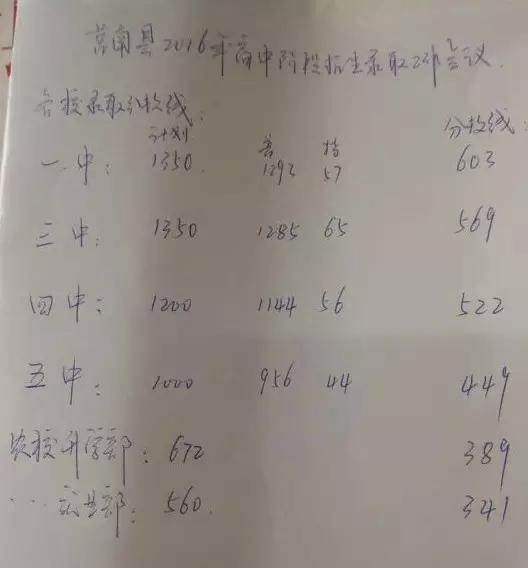 莒南县2016年高中阶段招生录取工作会议
各校录取分数线:
计划 普 指 分数线:
一中: 1350 1293 57 603
三中: 1350 1285 65 569
四中: 1200 1144 56 522
五中: 1000 956 44 449
农校升学部: 672 389
... 就业部: 560 341